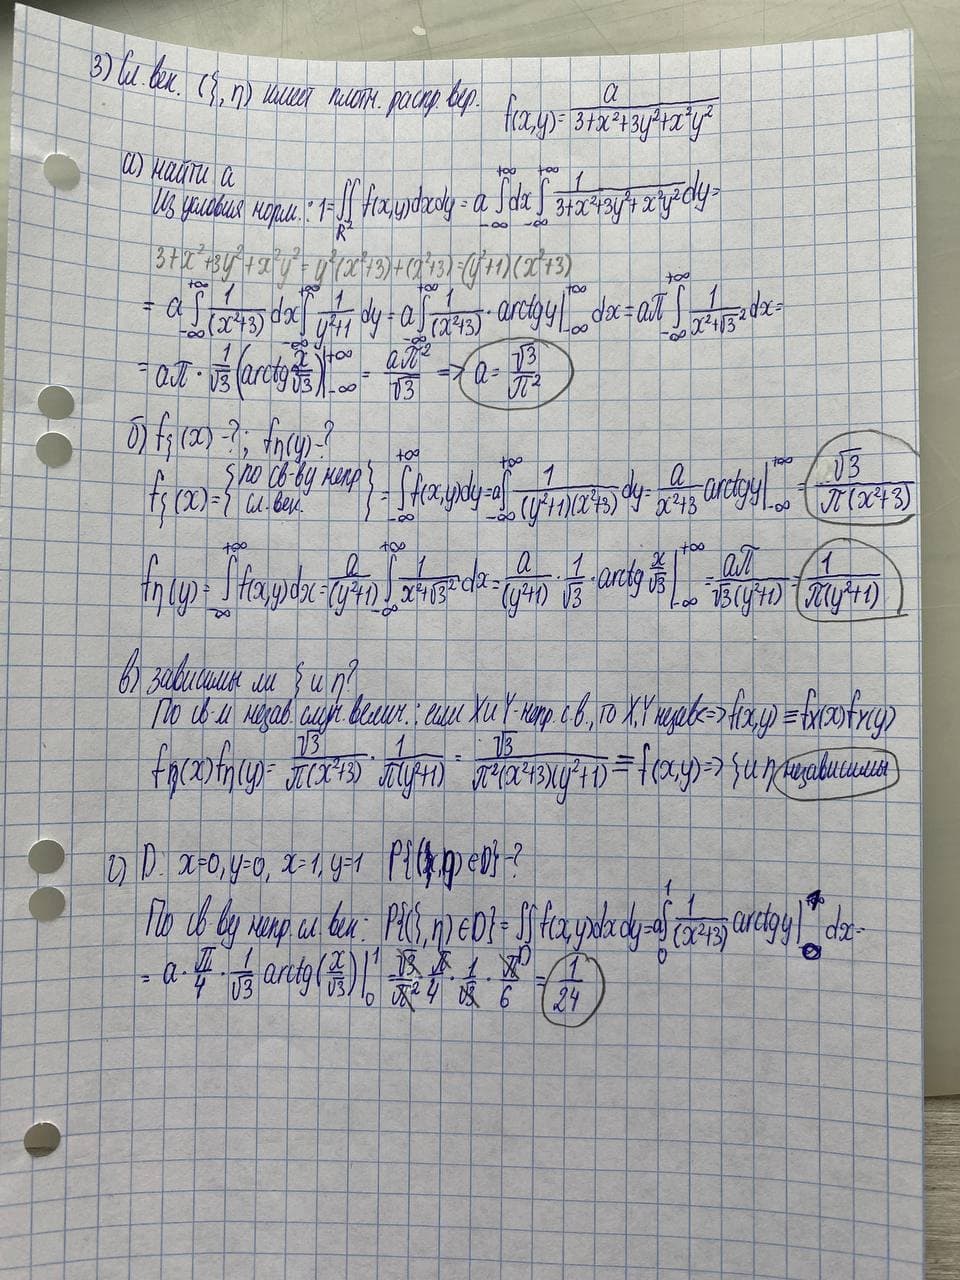 3) Сл. век. (ξ, η) имеет плотн. распр. вер. f(x,y) = a/(3+x²+3y²+x²y²)
а) найти a
Из условия норм.: 1 = ∬_{R²} f(x,y)dxdy = a ∫_{-∞}^{+∞} dx ∫_{-∞}^{+∞} 1/(3+x²+3y²+x²y²) dy =
3+x²+3y²+x²y² = y²(x²+3)+(x²+3) = (y²+1)(x²+3)
= a ∫_{-∞}^{+∞} 1/(x²+3) dx ∫_{-∞}^{+∞} 1/(y²+1) dy = a ∫_{-∞}^{+∞} 1/(x²+3) · arctgy |_{-∞}^{+∞} dx = aπ ∫_{-∞}^{+∞} 1/(x²+√3²) dx =
= aπ · 1/√3 (arctg x/√3) |_{-∞}^{+∞} = aπ²/√3 => a = √3/π²
б) f_ξ(x) -?; f_η(y) -?
f_ξ(x) = {по св-ву непр сл. век.} = ∫_{-∞}^{+∞} f(x,y)dy = a ∫_{-∞}^{+∞} 1/((y²+1)(x²+3)) dy = a/(x²+3) arctgy |_{-∞}^{+∞} = √3/(π(x²+3))
f_η(y) = ∫_{-∞}^{+∞} f(x,y)dx = a/(y²+1) ∫_{-∞}^{+∞} 1/(x²+√3²) dx = a/(y²+1) · 1/√3 · arctg x/√3 |_{-∞}^{+∞} = aπ/(√3(y²+1)) = 1/(π(y²+1))
в) зависимы ли ξ и η?
По св-м незав. случ. велич.: если X и Y - непр. с.в., то X, Y незав <=> f(x,y) ≡ fx(x)fy(y)
f_η(x)f_η(y) = √3/(π(x²+3)) · 1/(π(y²+1)) = √3/(π²(x²+3)(y²+1)) ≡ f(x,y) => ξ и η независимы
г) D: x=0, y=0, x=1, y=1 P{(ξ,η)∈D} -?
По св-ву непр. сл. век: P{(ξ,η)∈D} = ∬_D f(x,y)dxdy = a ∫_0^1 1/(x²+3) arctgy |_0^1 dx =
= a · π/4 · 1/√3 arctg(x/√3) |_0^1 = √3/π² · π/4 · 1/√3 · π/6 = 1/24